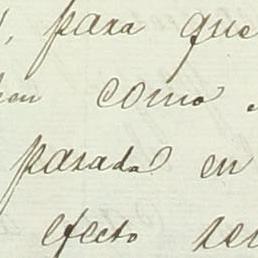 , para que
como
pasada en
efecto